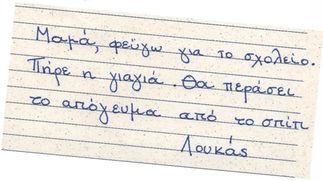 Μαμά, φεύγω για το σχολείο.
Πήρε η γιαγιά. Θα περάσει
το απόγευμα από το σπίτι
Λουκάς